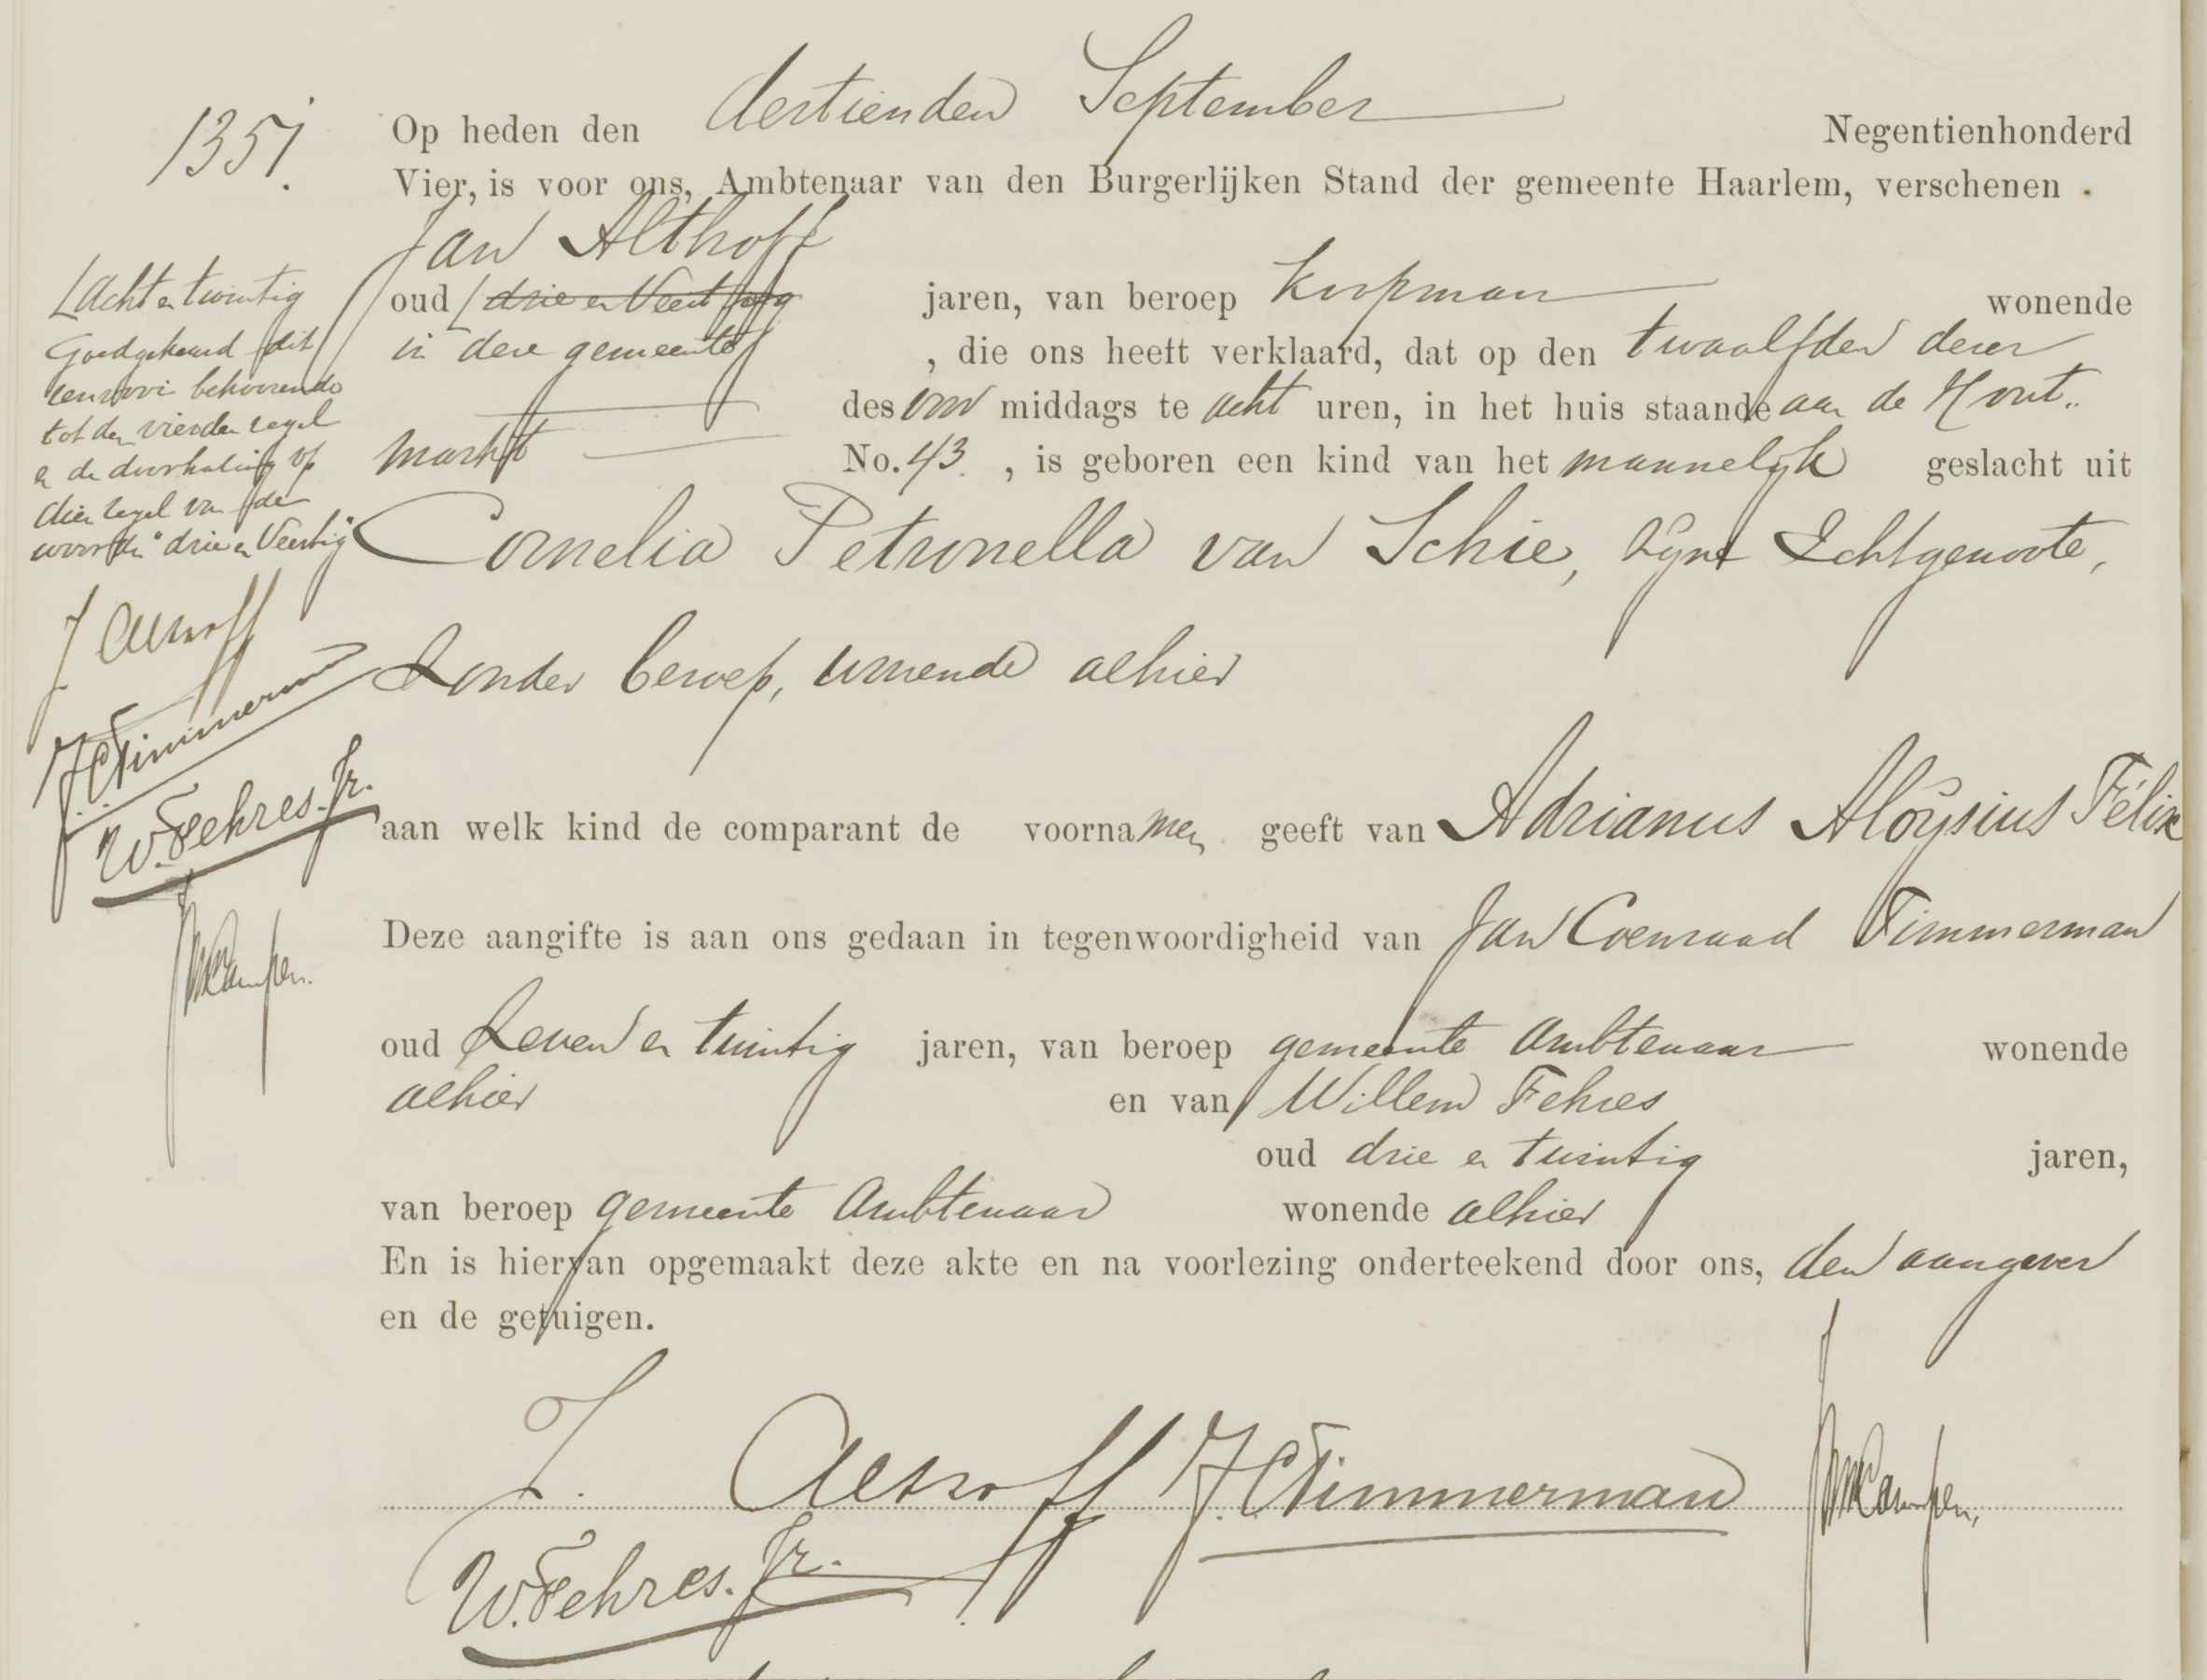 1351.
Op heden den dertienden September Negentienhonderd
Vier, is voor ons, Ambtenaar van den Burgerlijken Stand der gemeente Haarlem, verschenen .
Jan Althoff
oud drie en Veertig jaren, van beroep Koopman wonende
in deze gemeente , die ons heeft verklaard, dat op den twaalfden dezer
des voor middags te acht uren, in het huis staande aan de Hout..
markt No. 43. , is geboren een kind van het mannelijk geslacht uit
Cornelia Petronella van Schie, zijne Echtgenoote,
zonder beroep, wonende alhier
aan welk kind de comparant de voornamen geeft van Adrianus Aloÿsius Félix
Deze aangifte is aan ons gedaan in tegenwoordigheid van Jan Coenraad Timmerman
oud zeven en twintig jaren, van beroep gemeente Ambtenaar wonende
alhier en van Willem Fehres
oud drie en twintig jaren,
van beroep gemeente Ambtenaar wonende alhier
En is hiervan opgemaakt deze akte en na voorlezing onderteekend door ons, den aangever
en de getuigen.
J. Althoff J.C Timmerman
W. Fehres. Jr.
Acht en twintig
Goedgekeurd dit
renvooi behoorende
tot den vierden regel
en de doorhaling op
dien regel van de
woorden "drie en Veertig"
J Althoff
J.C Timmerman
W. Fehres. Jr.